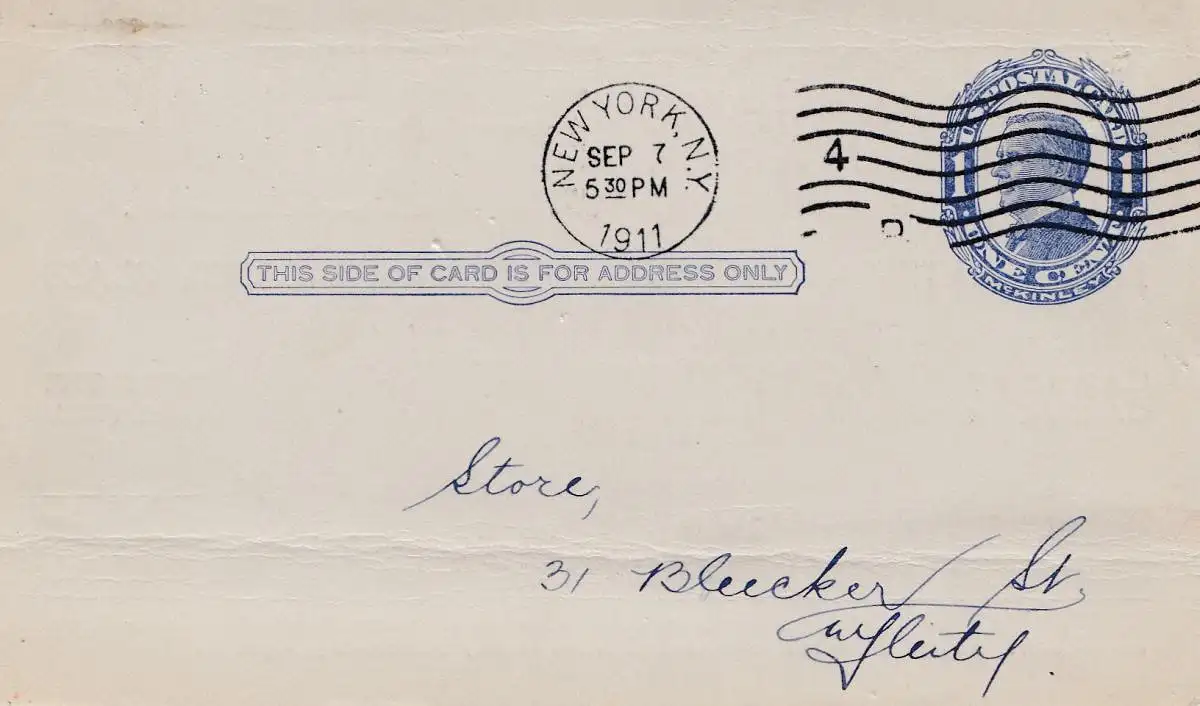 U.S. POSTAL CARD
1 1
ONE CENT
McKINLEY
NEW YORK, N.Y.
SEP 7
5 30 PM
1911
4
THIS SIDE OF CARD IS FOR ADDRESS ONLY
Store,
31 Bleecker St.
City